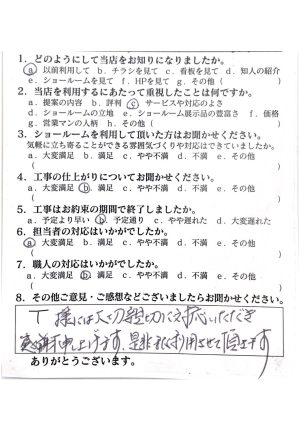 1. どのようにして当店をお知りになりましたか。
a. 以前利用して b. チラシを見て c. 看板を見て d. 知人の紹介
e. ショールームを見て f. HPを見て g. その他(
2. 当店を利用するにあたって重視したことは何ですか。
a. 提案の内容 b. 評判 c. サービスや対応のよさ
d. ショールームの立地 e. ショールーム展示品の豊富さ f. 価格
g. 営業マンの人柄 h. その他(
3. ショールームを利用して頂いた方はお聞かせください。
気軽に立ち寄ることができる雰囲気づくりや対応はできていましたか。
a. 大変満足 b. 満足 c. やや不満 d. 不満 e. その他
(
4. 工事の仕上がりについてお聞かせください。
a. 大変満足 b. 満足 c. やや不満 d. 不満 e. その他
(
5. 工事はお約束の期間で終了しましたか。
a. 予定より早い b. 予定通り c. やや遅れた d. 大変遅れた
6. 担当者の対応はいかがでしたか。
a. 大変満足 b. 満足 c. やや不満 d. 不満 e. その他
(
7. 職人の対応はいかがでしたか。
a. 大変満足 b. 満足 c. やや不満 d. 不満 e. その他
(
8. その他ご意見・ご感想などございましたらお聞かせください。
T様には 親切に対応いただき
申し上げます。是非 利用させて頂きます
ありがとうございます。